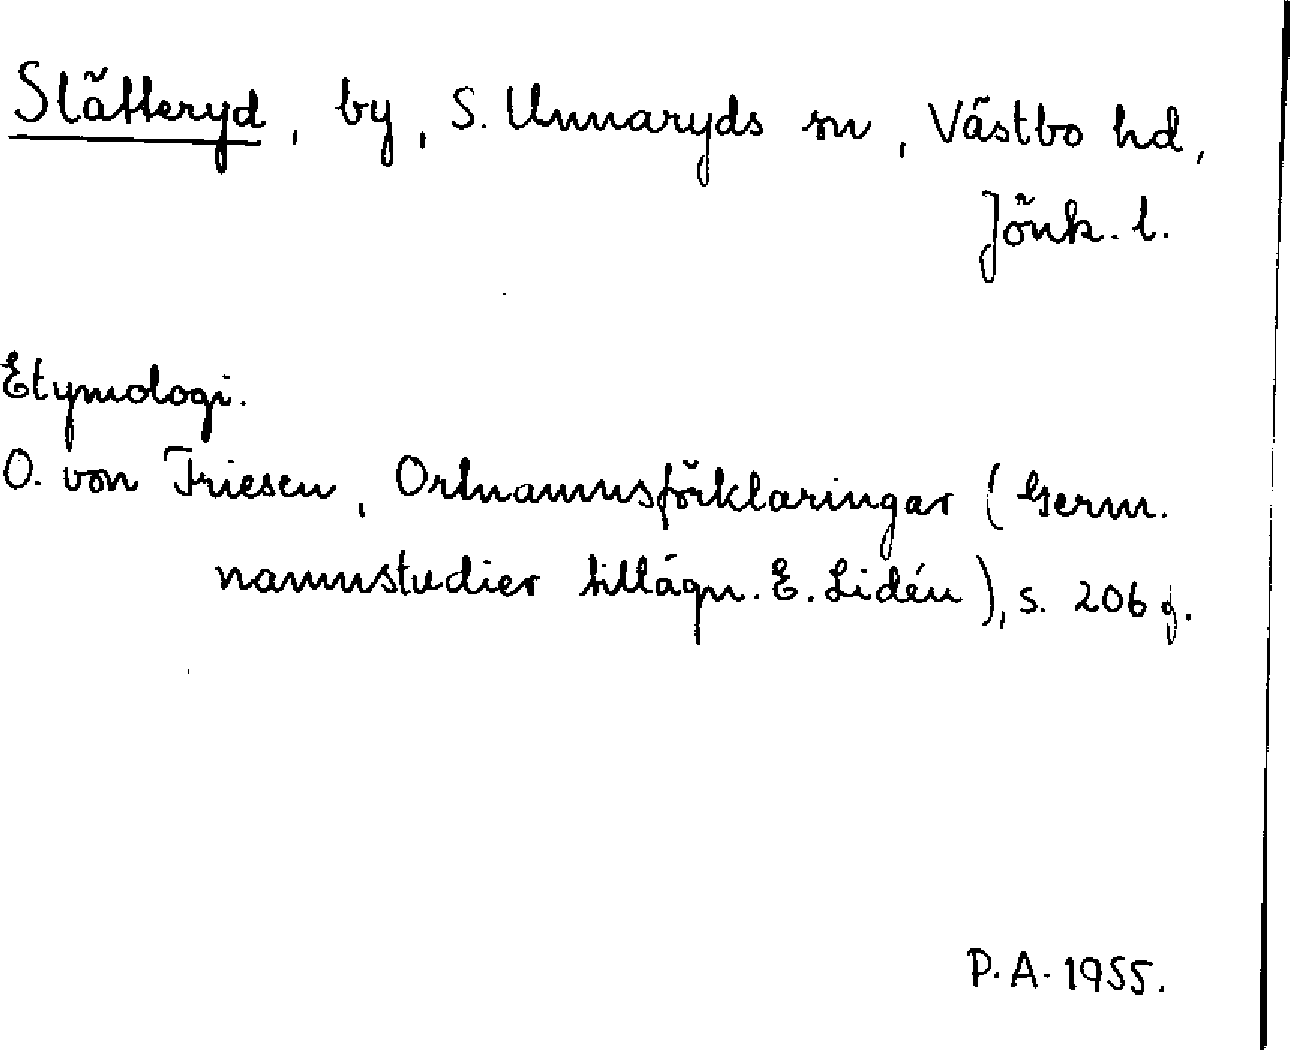 Slätteryd, by, S. Unnaryds sn, Västbo hd,
Jönk. l.
Etymologi.
O. von Friesen, Ortnamnsförklaringar (Germ.
namnstudier tillägn. E. Lidén), s. 206 f.
P.A. 1955.